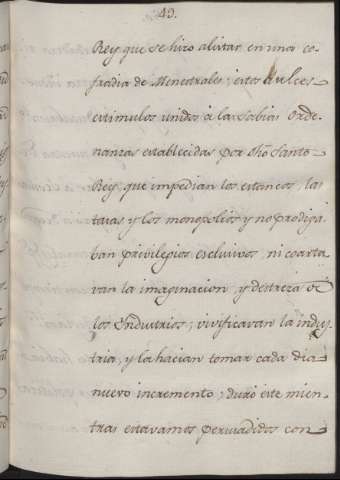 43.
Rey que se hizo alistar en una co-
fradia de Menestrales; estos dulces
estimulos unidos à las sabias orde-
nanzas establecidas por dho Santo
Rey, que impedian los estancos, las
tasas y los monopolios y no prodiga
ban privilegios esclusivos, ni coarta
van la imaginacion, y destreza de
los Industrios; vivificavan la indus-
tria, y la hacian tomar cada dia
nuevo incremento; duró este mien-
tras estavamos persuadidos con